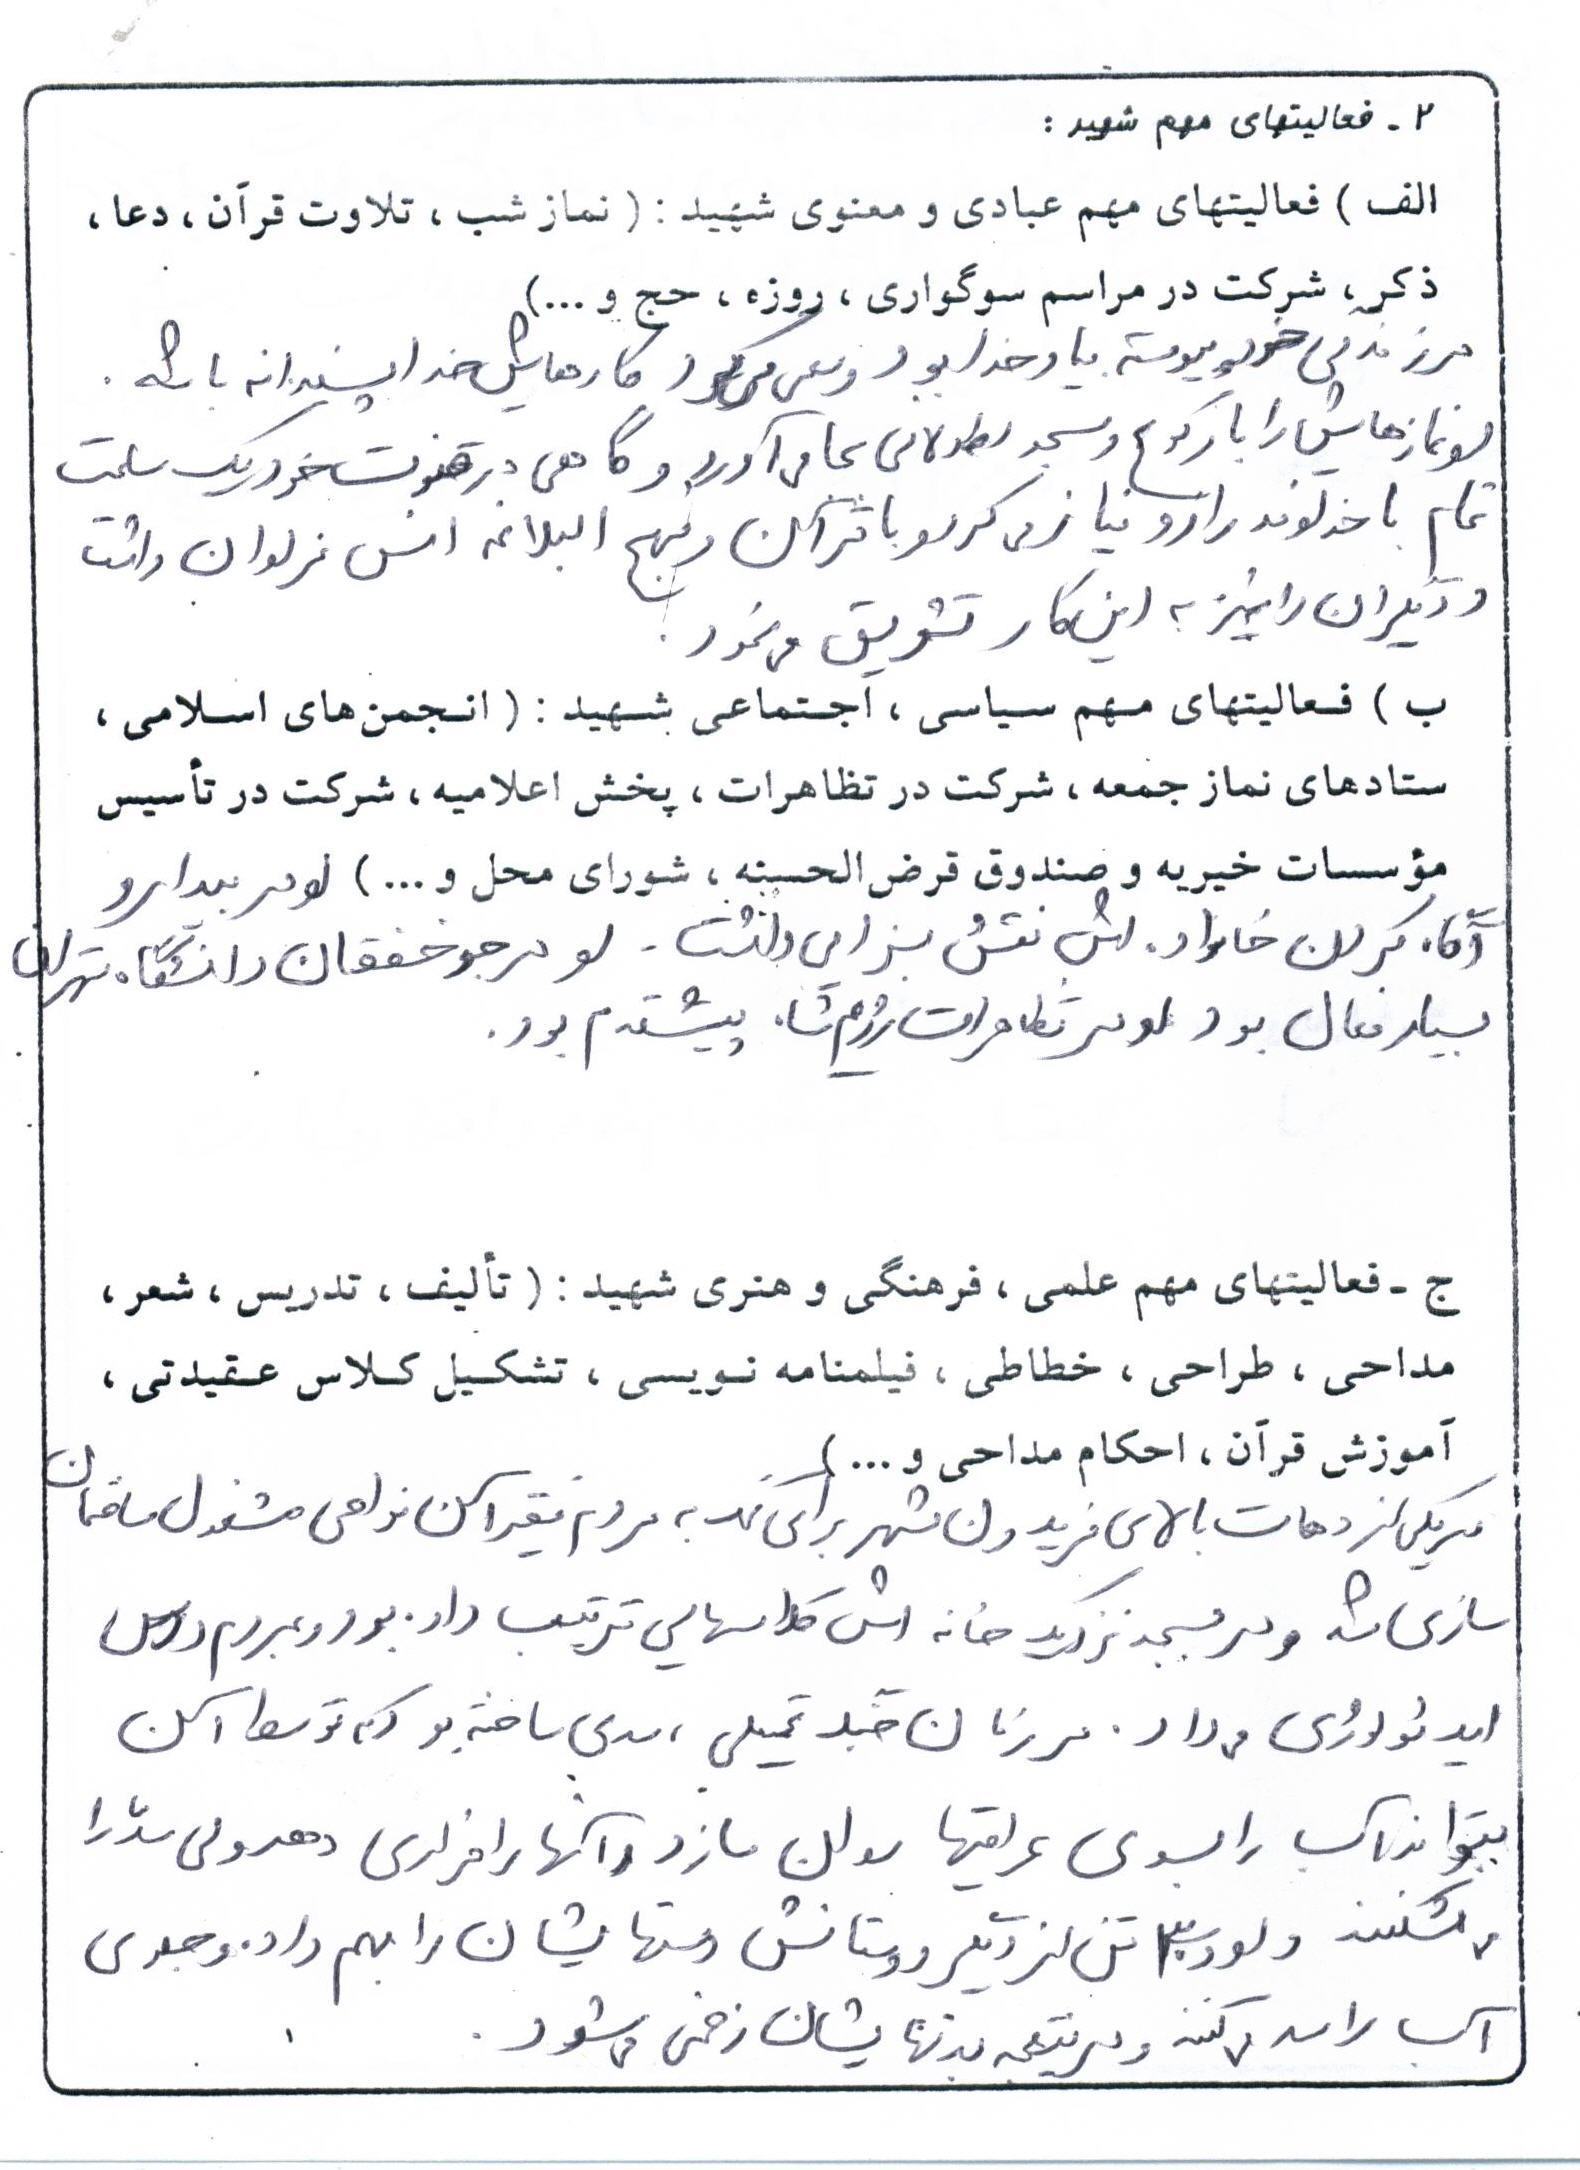 ۲ ـ فعالیتهای مهم شهید :
الف ) فعالیتهای مهم عبادی و معنوی شهید : ( نماز شب ، تلاوت قرآن ، دعا ،
ذکر ، شرکت در مراسم سوگواری ، روزه ، حج و ...)
در زندگی خود پیوسته بیاد خدا بود و سعی می‌کرد کارهایش خداپسندانه باشد .
او نمازهایش را با رکوع و سجود طولانی بجا می‌آورد و گاهی در قنوت خود یک ساعت
تمام با خداوند راز و نیاز می‌کرد و با قرآن و نهج البلاغه انس فراوان داشت
و دیگران را نیز به این کار تشویق می‌نمود .
ب ) فعالیتهای مهم سیاسی ، اجتماعی شهید : ( انجمن‌های اسلامی ،
ستادهای نماز جمعه ، شرکت در تظاهرات ، پخش اعلامیه ، شرکت در تأسیس
مؤسسات خیریه و صندوق قرض‌الحسنه ، شورای محل و ... ) او در بیداری و
آگاه کردن خانواده اش نقش بسزایی داشت - او در جو خفقان دانشگاه تهران
بسیار فعال بود او در تظاهرات رژیم شاه پیشقدم بود .
ج ـ فعالیتهای مهم علمی ، فرهنگی و هنری شهید : ( تألیف ، تدریس ، شعر ،
مداحی ، طراحی ، خطاطی ، فیلمنامه نویسی ، تشکیل کلاس عقیدتی ،
آموزش قرآن ، احکام مداحی و ... )
در یکی از دهات بالای فریدون شهر برای کمک به مردم فقیر آن نواحی مشغول ساختمان
سازی شد و در مسجد نزدیک خانه اش کلاسهایی ترتیب داده بود و بمردم درس
ایدئولوژی می‌داد . در زمان جنگ تحمیلی ، سدی ساخته بود که توسط آن
بتواند آب را بسوی عراقیها روان سازد و آنها را فراری دهد ولی سد را
می‌شکنند و او و تن از دیگر دوستانش دستهایشان را بهم داده و جلوی
آب را سد می‌کنند و در نتیجه بدنهایشان زخمی می‌شود .